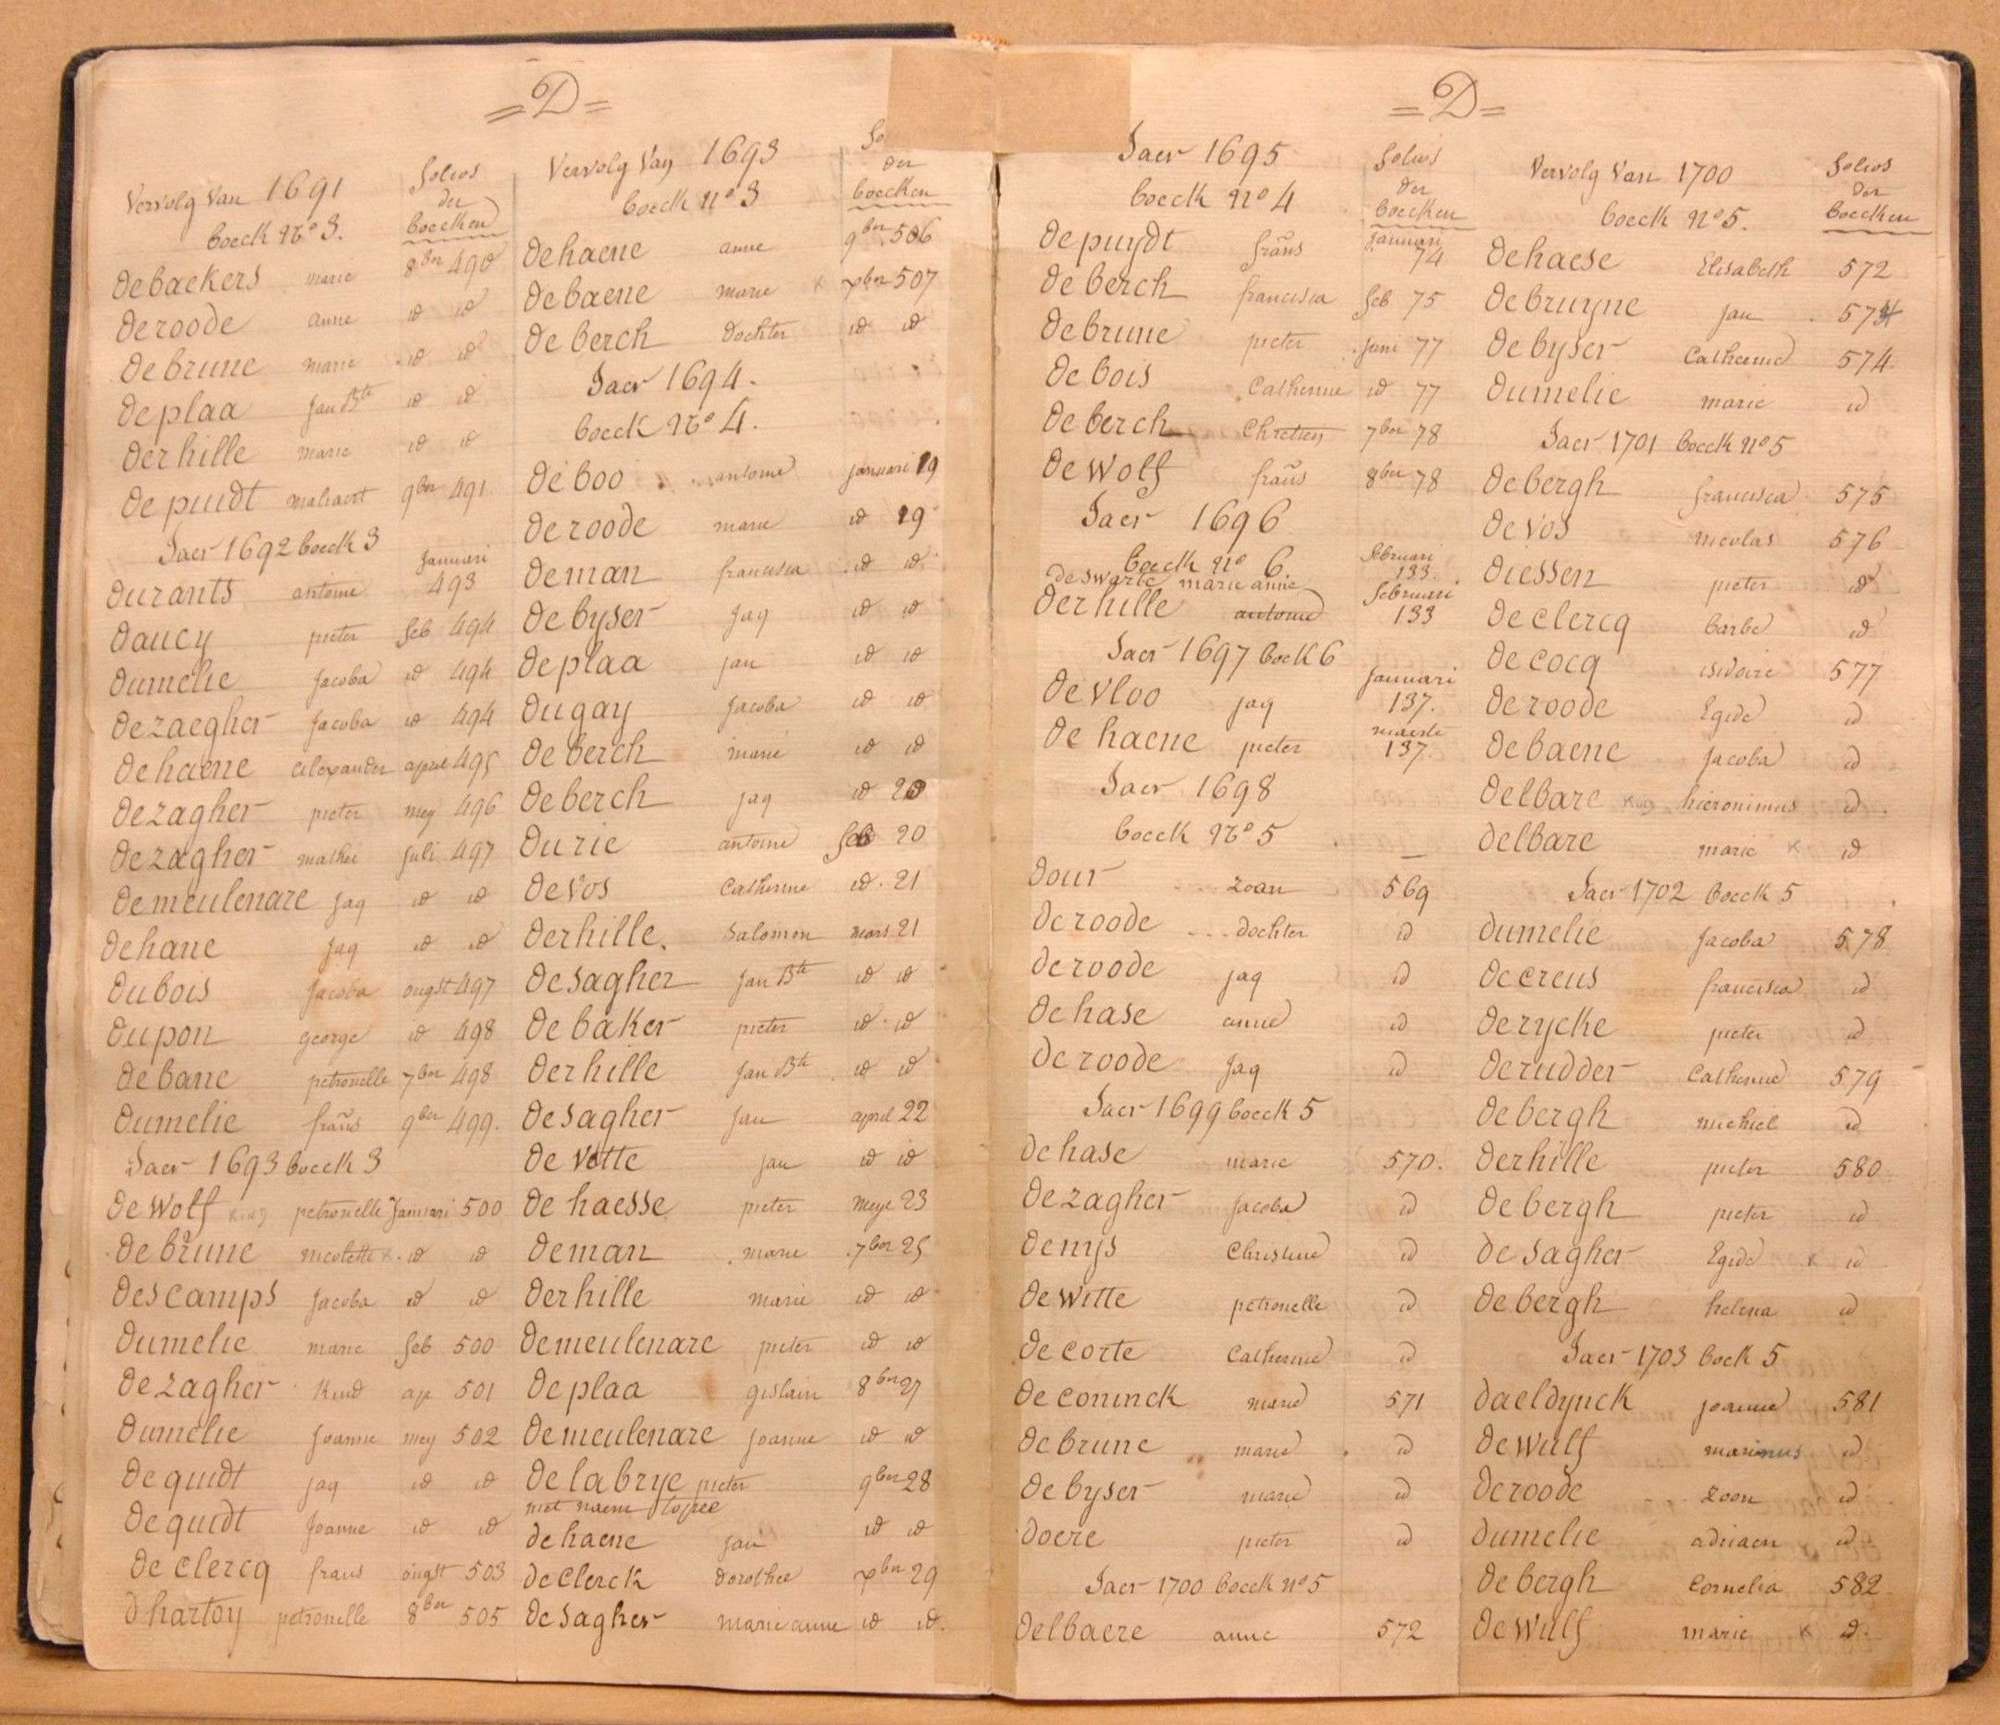 =D=
Vervolg Van 1691
boeck No 3.
Folios
der
boecken
Debackers marie 8ber 490
Deroode anne id id
Debrune marie id id
Deplaa Jan Bte id id
Derhille marie id id
Depuidt 9ber 491
Jaer 1692 boeck 3
Durants antoine Januari 493
Daucy pieter feb 494
Dumelie Jacoba id 494
Dezaegher Jacoba id 494
Dehaene Alexander april 495
Dezagher pieter mey 496
Dezagher mathie Juli 497
Demeulenare Jaq id id
Dehane Jaq id id
Dubois Jacoba ougst 497
Dupon george id 498
Debane petronelle 7ber 498
Dumelie frans 9ber 499.
Jaer 1693 boeck 3
De Wolf petronelle Januari 500
De brune nicolette x id id
Descamps Jacoba id id
Dumelie marie feb 500
Dezagher Kind ap 501
Dumelie Joanne mey 502
Dequidt Jaq id id
Dequidt Joanne id id
De Clercq frans ougst 503
Dhartoy petronelle 8ber 505
Vervolg Van 1693
boeck No 3
der
boecken
Dehaene anne 9ber 506
Debaene marie x xber 507
De berch Dochter id id
Jaer 1694.
boeck No 4.
De boo antoine Januari 19
Deroode marie id 19
Deman francisca id id
De byser Jaq id id
Deplaa Jan id id
Dugay Jacoba id id
De berch marie id id
De berch Jaq id 20
Durie antoine feb 20
De Vos Catherine id 21
Derhille Salomon mars 21
De Sagher Jan Bte id id
De baker pieter id id
Derhille Jan Bte id id
De Sagher Jan april 22
De Vette Jan id id
De haesse pieter Meye 23
Deman marie 7ber 25
Derhille marie id id
Demeulenare pieter id id
Deplaa gislain 8ber 27
Demeulenare Joanne id id
De labrye pieter 9ber 28
met naem
de haene Jan id id
de Clerck Dorothee xber 29
de Sagher Marie anne id id.
=D=
Jaer 1695
boeck No 4
Folios
der
boecken
Depuydt frans Januari 74
De berch francisca feb 75
De brune pieter Juni 77
De bois Catherine id 77
De berch Chretien 7ber 78
De Wolf frans 8ber 78
Jaer 1696
boeck No 6.
deswarte marie anne februari 133.
Derhille antoine februari 133
Jaer 1697 boek 6
De Vloo Jaq Januari 137.
De haene pieter maerte 137.
Jaer 1698
boeck No 5
Dour zoan 569
Deroode Dochter id
Deroode Jaq id
De hase anne id
De roode Jaq id
Jaer 1699 boeck 5
De hase marie 570.
Dezagher Jacoba id
Denys Christine id
De Witte petronelle id
De corte Catherine id
De coninck marie 571
De brune marie id
De byser marie id
Doere pieter id
Jaer 1700 boeck No 5
Delbaere anne 572
Vervolg Van 1700
boeck No 5.
Folios
der
boecken
Dehaese Elisabeth 572
De bruyne Jan 574
De byser Catherine 574
Dumelie marie id
Jaer 1701 boeck No 5
Debergh francisca 575
De Vos nicolas 576
Diessen pieter id
De Clercq barbe id
De Cocq isidoire 577
Deroode Egide id
De baene Jacoba id
Delbare hieronimus id
Delbare marie x id
Jaer 1702 boeck 5
Dumelie Jacoba 578
De creus francisca id
De rycke pieter id
De rudder Catherine 579
De bergh michiel id
Derhille pieter 580
De bergh pieter id
De Sagher Egide x id
De bergh helena id
Jaer 1703 boek 5
Daeldynck Joanne 581
De Wulf marinus id
De roode zoon id
Dumelie adriaen id
De bergh Cornelia 582
De Wulf marie x id.